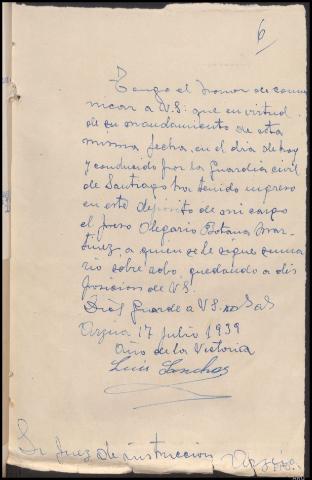 6
Tengo el honor de comu
nicar a V.S: que en virtud
de su mandamiento de esta
misma fecha, en el dia de hoy
y conducido por la Guardia civil
de Santiago ha tenido ingreso
en este depósito de mi cargo
el preso Olegario Botana Mar-
tinez, a quien se le sigue suma
rio sobre robo, quedando a dis
posicion de V.S.
Dios Guarde a V.S. ms as
Arzua 17 Julio 1939
Año de la Victoria
Luis Sanchez
Sr Juez de instruccion Arzua